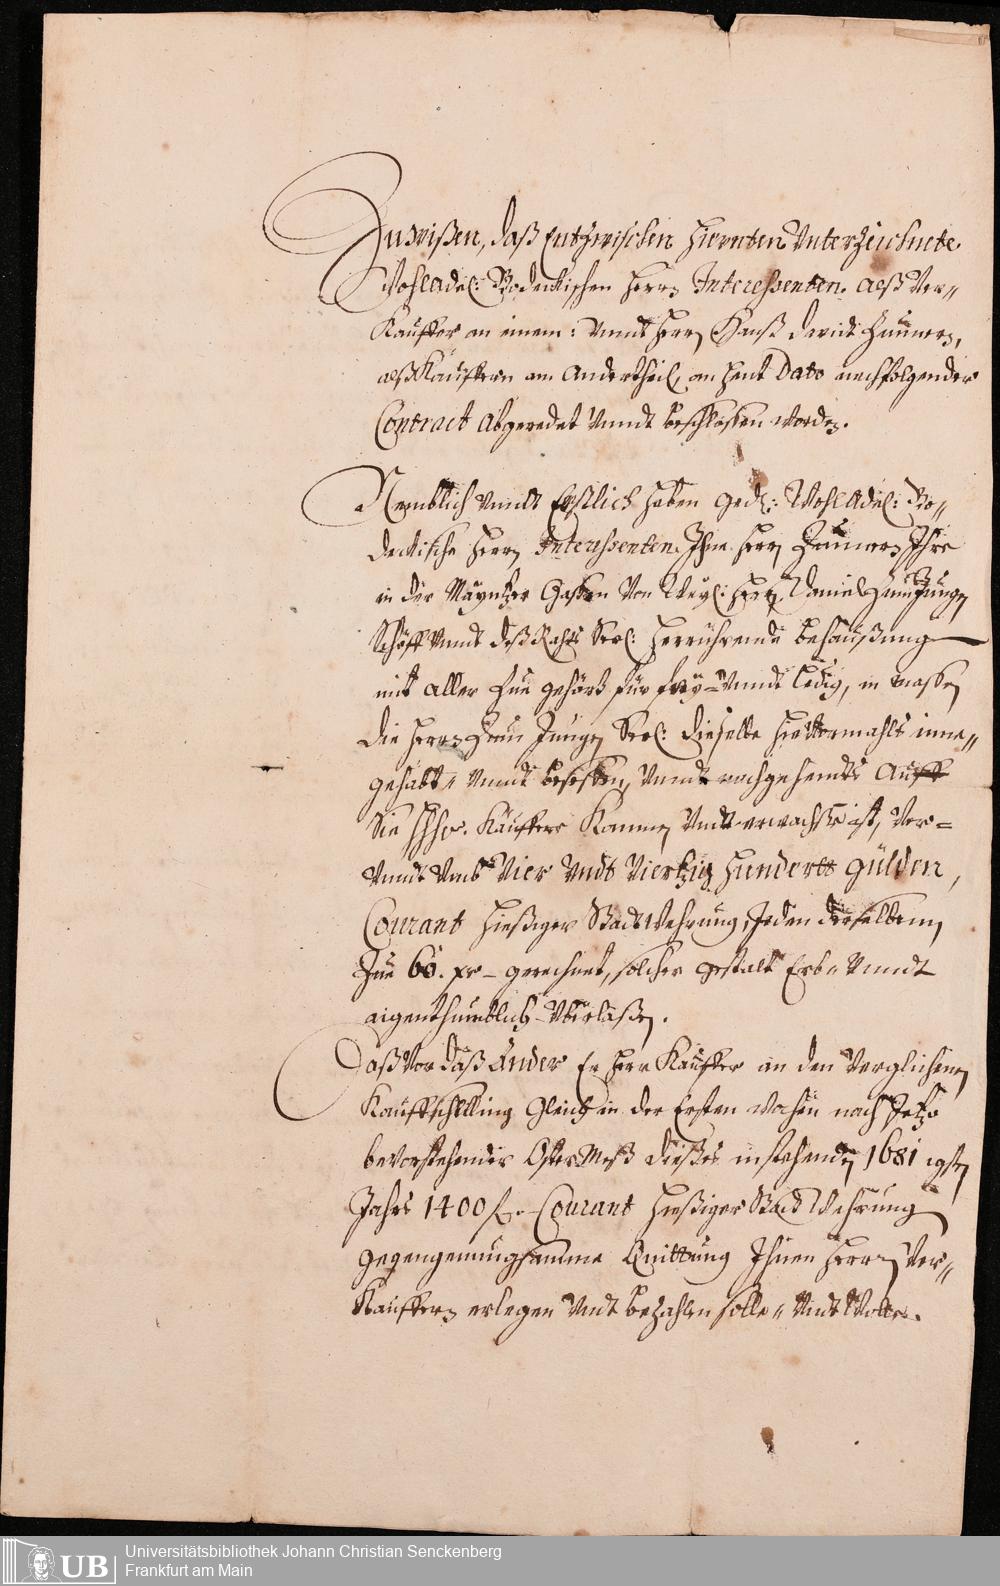 Zu wißen, daß Entzwischen hierunten Unterzeichnete
WohlAdel: Bodeckischen Herrn Interessenten. alß Ver„
Kauffer an einem: Unndt Herrn Hanß David Zaunern,
alß Kauffern am Andertheil, an heut Dato nachfolgender
Contract Abgeredet Unndt beschloßen worden.
Nemblich Unndt Erstlich haben Ged: WohlAdel: Bo„
deckische Herrn Interessenten. Ihme Herrn Zaunern Ihre
in der Mäyntzer Gaßen Von Weyl: Herrn Daniel Zum Jungen
Schöff Unnd deß Rahts Seel: herrührende behaußung
mit aller Zue gehörd für frey- Unndt ledig, in maßen
die Herrn Zum Jungen Seel: dieselbe hiebevormahls inne„
gehabt„ Unndt beseßen, Unndt nachgehendts Auff
Sie HHn. Käuffere Kommen Undt erwachßen ist, Vor=
Unndt Umb Vier Undt Viertzig Hundertt Gülden,
Courant hießiger Stadt Wehrung, Jeden derselbenn
Zue 60. xr gerechnet, solcher gestalt Erb„ Unndt
aigenthumblich Uberlaßen.
Daß Vor daß Ander Er Herr Kauffer an den Verglichenen
Kauffschilling Gleich in der Ersten wochen nach Jetzo
bevorstehender OsterMeß dießes instehenden 1681 igsten
Jahrs 1400 fl. Courant hießiger Stadt Wehrung
gegen genungsamme Quittung Ihnen Herrn Ver„
Kauffern erlegen Undt bezahlen solle„ Undt Wolle.
UB
Universitätsbibliothek Johann Christian Senckenberg
Frankfurt am Main